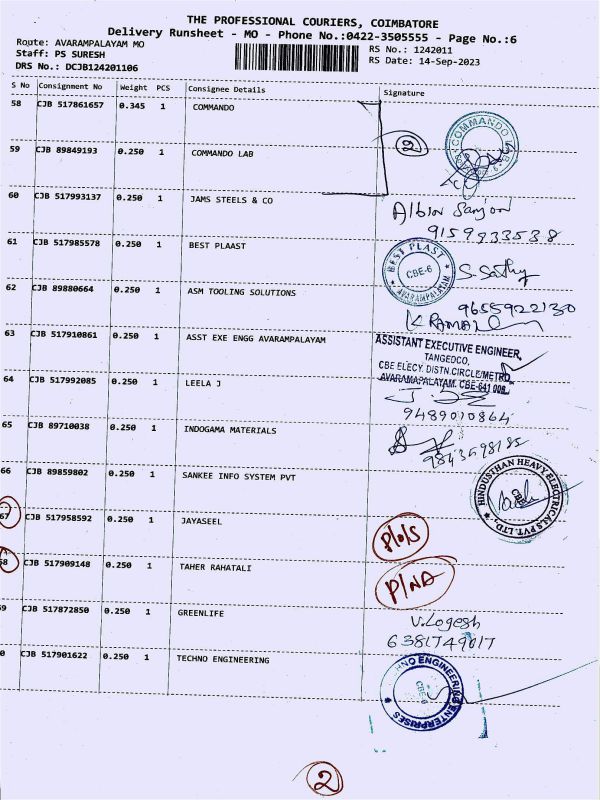 THE PROFESSIONAL COURIERS, COIMBATORE
Delivery Runsheet - MO - Phone No.:0422-3505555 - Page No.:6
Route: AVARAMPALAYAM MO
RS No.: 1242011
Staff: PS SURESH
RS Date: 14-Sep-2023
DRS No.: DCJB124201106
S No Consignment No Weight PCS Consignee Details Signature
58 CJB 517861657 0.345 1 COMMANDO
COMMANDO LAB
59 CJB 89849193 0.250 1 COMMANDO LAB
60 CJB 517993137 0.250 1 JAMS STEELS & CO
Albin Sanjon
9159933538
61 CJB 517985578 0.250 1 BEST PLAAST
BEST PLAST
CBE-6
AVARAMPALAYAM
S. Sathy
62 CJB 89880664 0.250 1 ASM TOOLING SOLUTIONS
9655922130
63 CJB 517910861 0.250 1 ASST EXE ENGG AVARAMPALAYAM
ASSISTANT EXECUTIVE ENGINEER,
TANGEDCO,
CBE ELECY. DISTN.CIRCLE/METRO,
AVARAMAPALAYAM. CBE-641 006.
64 CJB 517992085 0.250 1 LEELA J
9489010864
65 CJB 89710038 0.250 1 INDOGAMA MATERIALS
9843698185
66 CJB 89859802 0.250 1 SANKEE INFO SYSTEM PVT
HINDUSTHAN HEAVY ELECTRICALS PVT. LTD.,
67 CJB 517958592 0.250 1 JAYASEEL
P/O/S
68 CJB 517909148 0.250 1 TAHER RAHATALI
P/NA
9 CJB 517872850 0.250 1 GREENLIFE
V.Logesh
6381749017
0 CJB 517901622 0.250 1 TECHNO ENGINEERING
HNO ENGINEERING ENTERPRISES
CBE-6
2